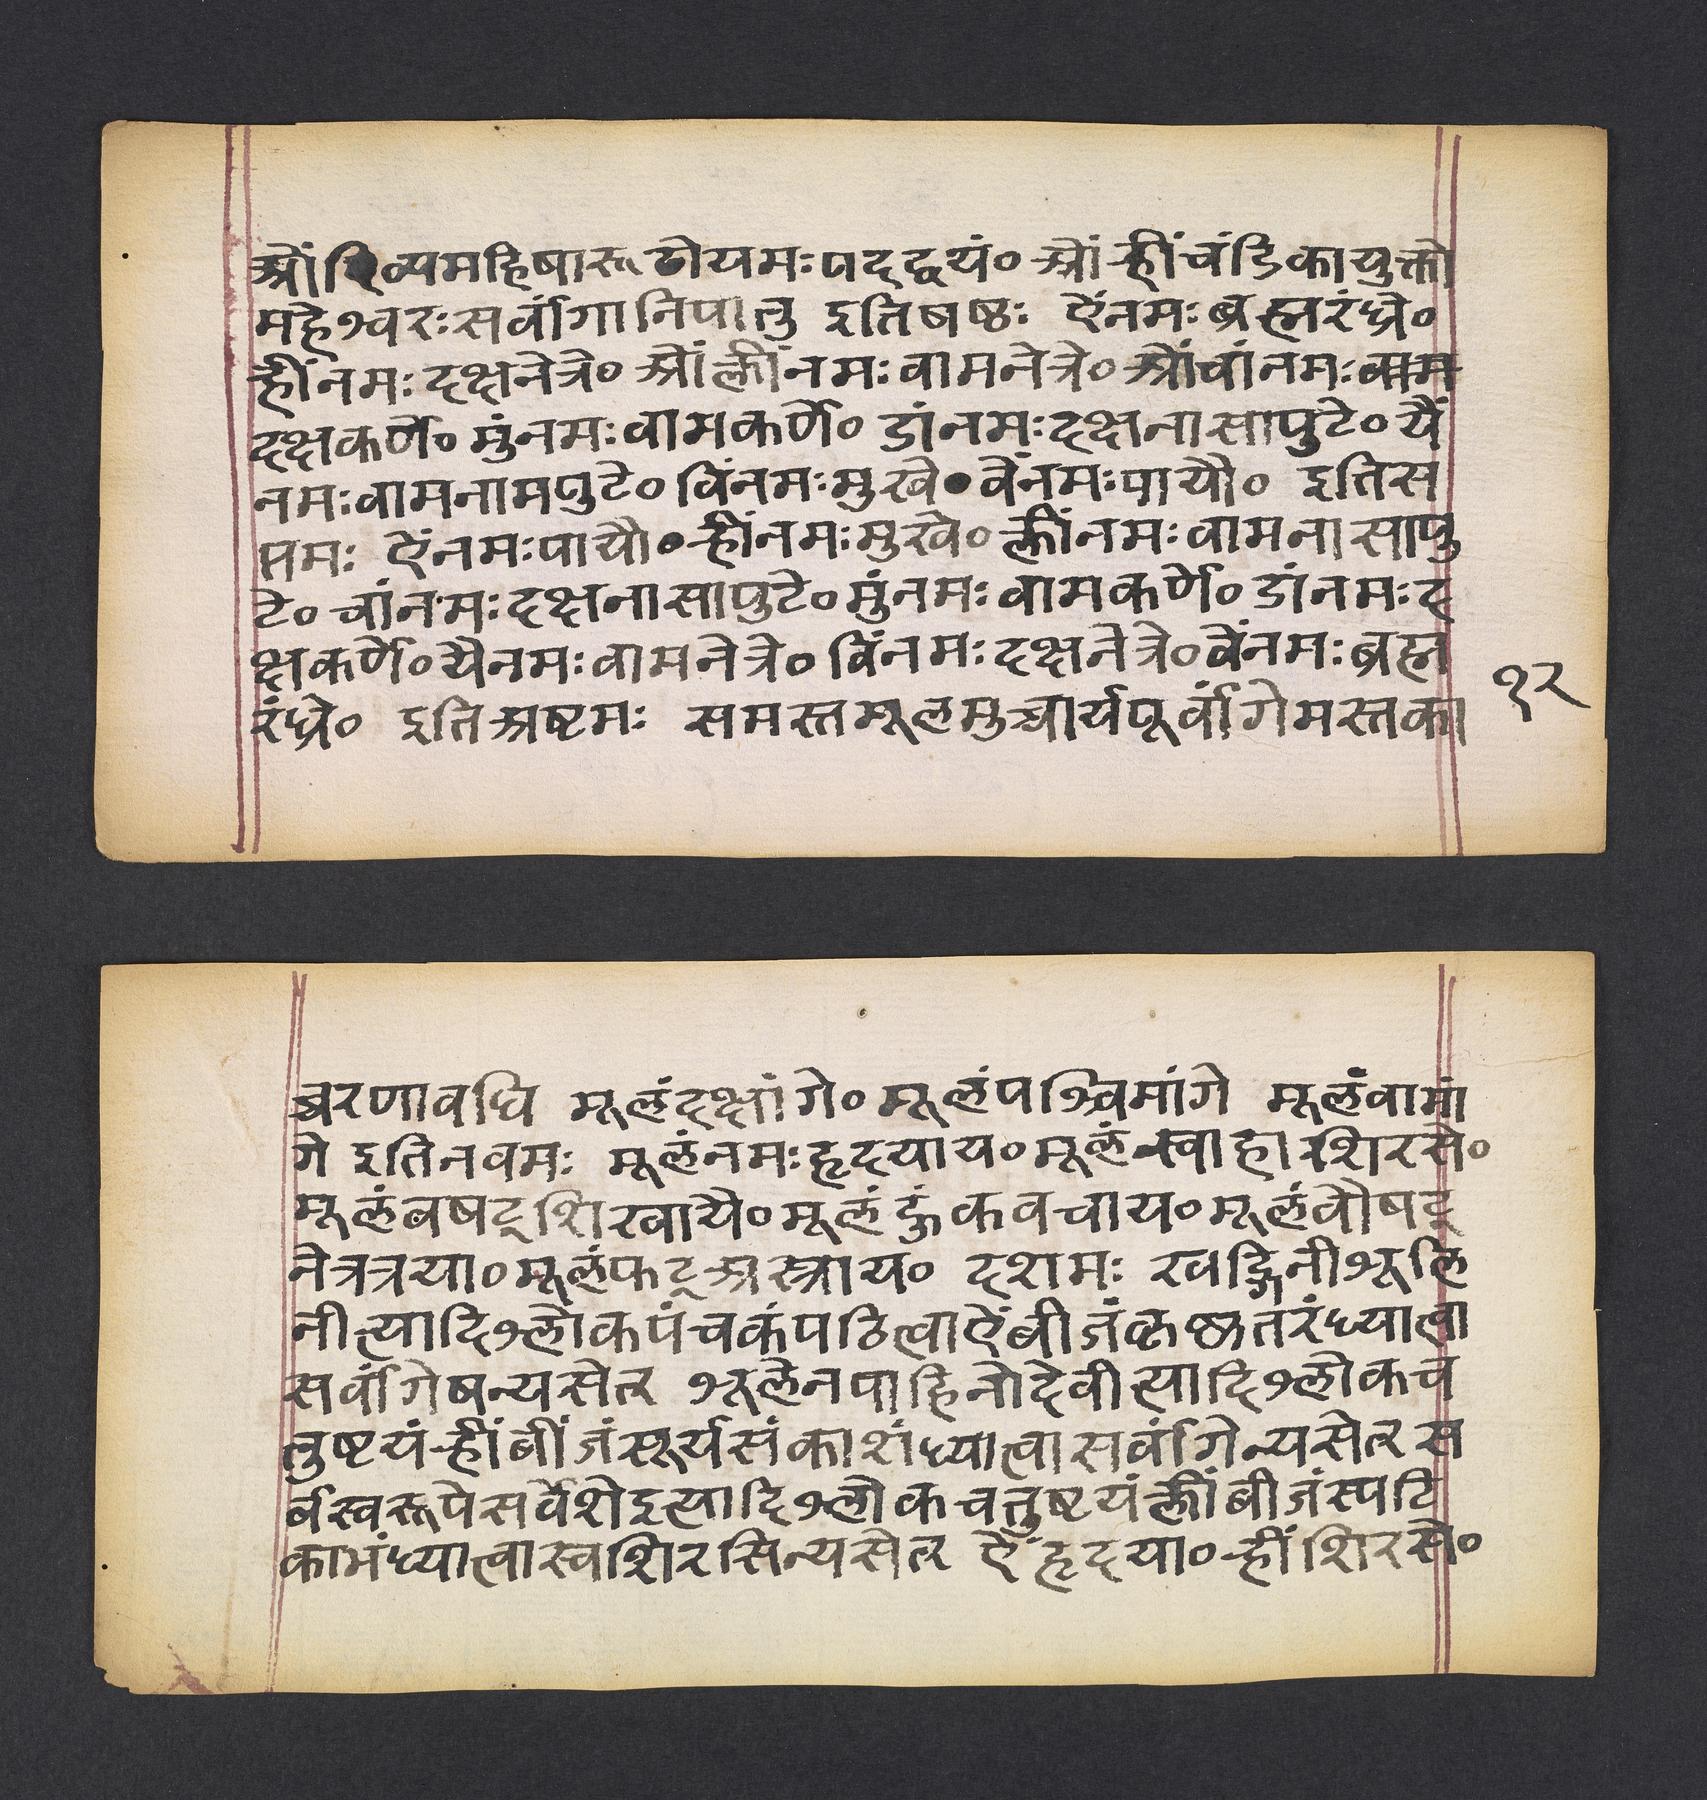 ओं दिव्यमहिषारूढोयमःपदद्वयं० ओं ह्रींचंडिकायुक्तो
महेश्वरःसर्वांगानिपातु इतिषष्ठः ऐंनमःब्रह्मरंध्रे०
ह्रींनमःदक्षनेत्रे० ओंक्लींनमःवामनेत्रे० ओंचांनमःवाम
दक्षकर्णे० मुंनमःवामकर्णे० डांनमःदक्षनासापुटे० यैं
नमःवामनामपुटे० विंनमःमुखे० वेंनमःपायौ० इतिस
प्तमः ऐंनमःपायौ० ह्रींनमःमुखे० क्लींनमःवामनासापु
टे० चांनमःदक्षनासापुटे० मुंनमःवामकर्णे० डांनमःद
क्षकर्णे० यैनमःवामनेत्रे० विंनमःदक्षनेत्रे० वेंनमःब्रह्म
रंध्रे० इतिअष्टमः समस्तमूलमुच्चार्यपूर्वांगेमस्तका
१२
च्चरणावधि मूलंदक्षांगे० मूलंपश्चिमांगे मूलंवामां
गे इतिनवमः मूलंनमःहृदयाय० मूलंस्वाहाशिरसे०
मूलंवषट्शिखायै० मूलंहुंकवचाय० मूलंवौषट्
नेत्रत्रया० मूलंफट्अस्त्राय० दशमः खड्गिनीशूलि
नीत्यादिश्लोकपंचकंपठित्वाऐंबीजंकृष्णतरंध्यात्वा
सर्वांगेषन्यसेत् शूलेनपाहिनोदेवीत्यादिश्लोकच
तुष्टयंह्रींबींजंसूर्यसंकाशंध्यात्वासर्वांगेन्यसेत् स
र्वस्वरूपेसर्वेशेइत्यादिश्लोकचतुष्टयंक्लींबीजंस्पटि
काभंध्यात्वास्वशिरसिन्यसेत् ऐंहृदया० ह्रींशिरसे०